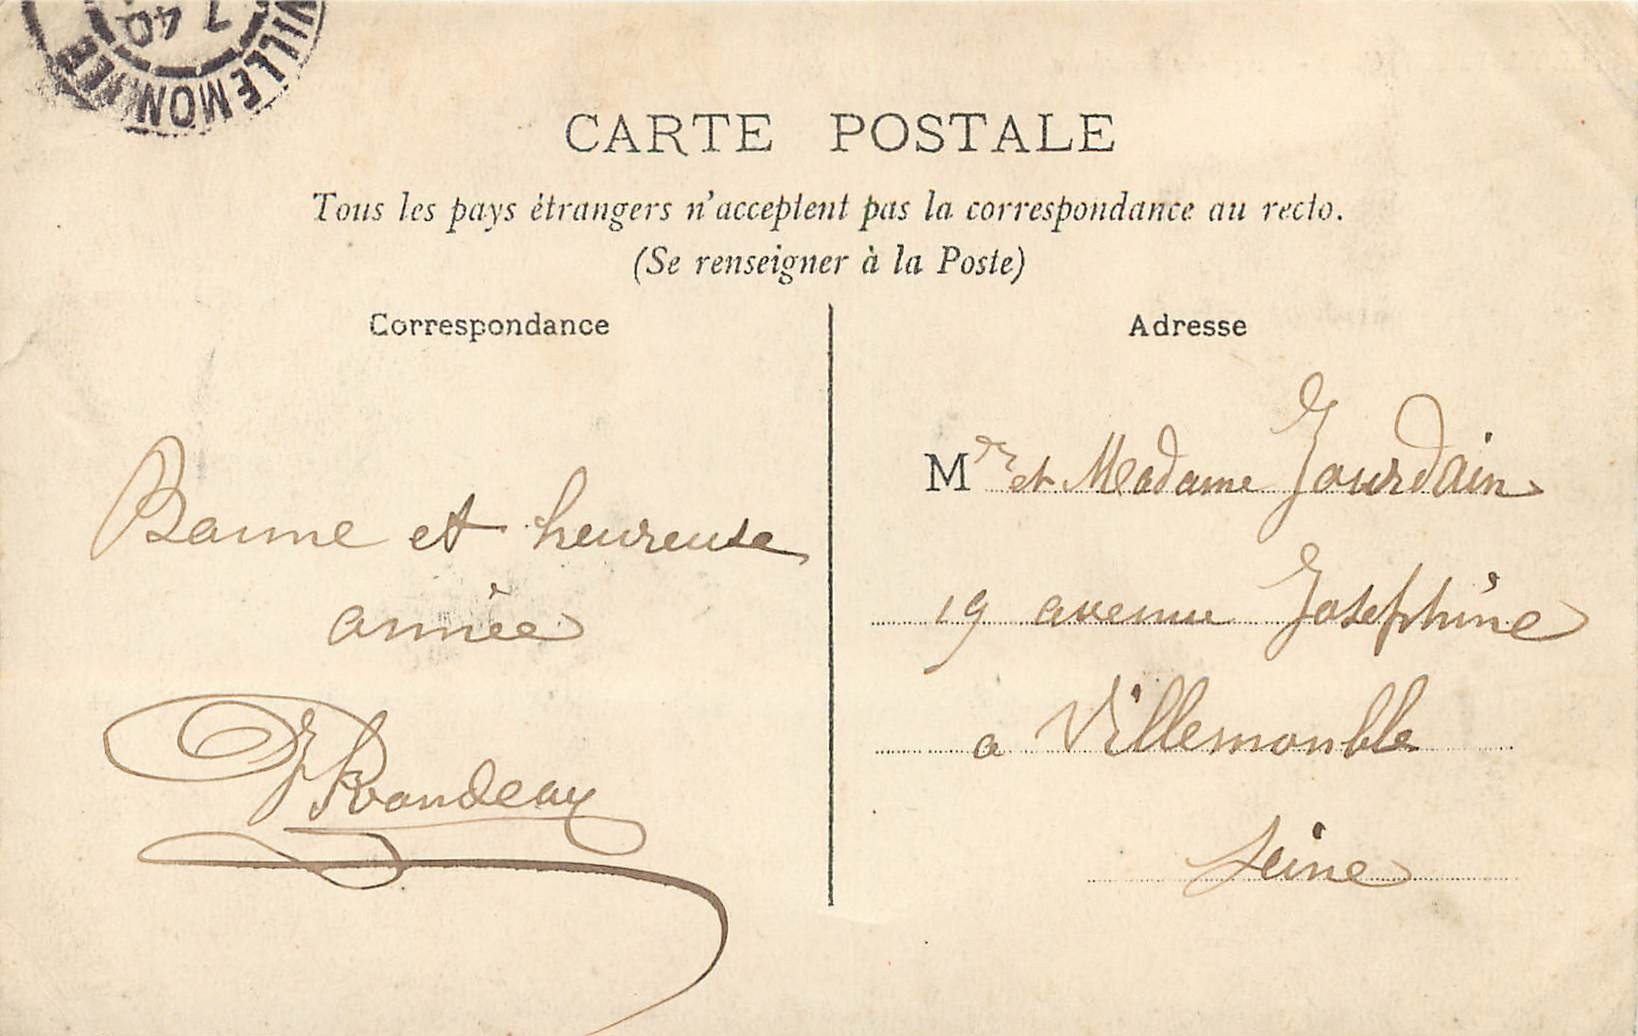 VILLEMOMBLE
7 40
CARTE POSTALE
Tous les pays étrangers n'acceptent pas la correspondance au recto.
(Se renseigner à la Poste)
Correspondance
Bonne et heureuse
année
Adresse
Mr et Madame Jourdain
19 avenue Josephine
a Villemomble
Seine